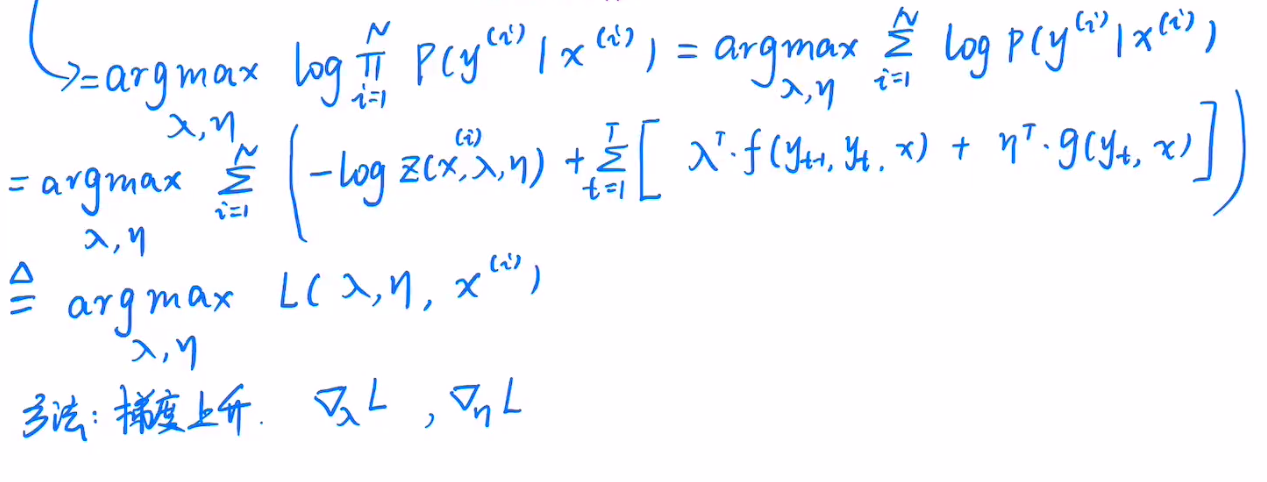 ↳= argmax_{λ,η} log ∏_{i=1}^{N} P(y^{(i)} | x^{(i)}) = argmax_{λ,η} ∑_{i=1}^{N} log P(y^{(i)} | x^{(i)})
= argmax_{λ,η} ∑_{i=1}^{N} ( -log Z(x^{(i)}, λ, η) + ∑_{t=1}^{T} [ λ^T · f(y_{t-1}, y_t, x) + η^T · g(y_t, x) ] )
≜ argmax_{λ,η} L(λ, η, x^{(i)})
方法: 梯度上升. ∇_λ L , ∇_η L